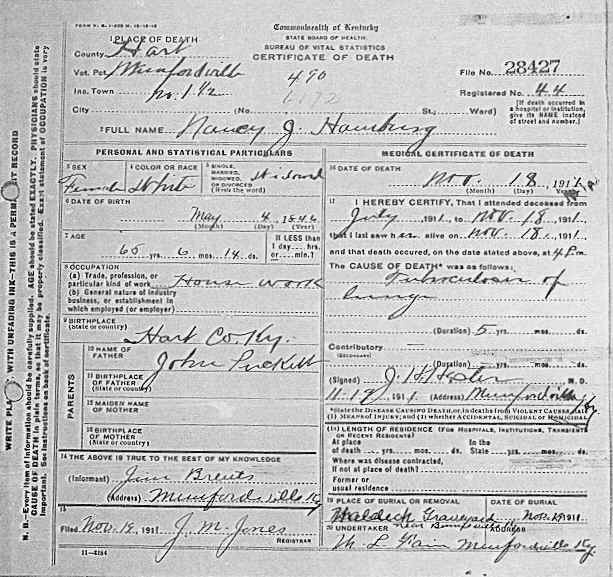 FORM V. S. 1-
Commonwealth of Kentucky
STATE BOARD OF HEALTH
BUREAU OF VITAL STATISTICS
CERTIFICATE OF DEATH
1 PLACE OF DEATH
County Hart
Vot. Pct Munfordville
490
File No. 28427
Inc. Town No. 1 1/2
Registered No. 44
City (No. St.; Ward)
[If death occurred in a hospital or institution, give its NAME instead of street and number.]
2 FULL NAME Nancy J.
PERSONAL AND STATISTICAL PARTICULARS
3 SEX Female
4 COLOR OR RACE White
5 SINGLE, MARRIED, WIDOWED, OR DIVORCED (Write the word) Widowed
6 DATE OF BIRTH
May 4 1846
(Month) (Day) (Year)
7 AGE
65 yrs. 6 mos. 14 ds.
If LESS than 1 day hrs. or min.?
8 OCCUPATION
(a) Trade, profession, or particular kind of work House work
(b) General nature of industry business, or establishment in which employed (or employer)
9 BIRTHPLACE
(State or country) Hart Co. Ky.
PARENTS
10 NAME OF FATHER John Puckett
11 BIRTHPLACE OF FATHER (State or country)
12 MAIDEN NAME OF MOTHER
13 BIRTHPLACE OF MOTHER (State or country)
14 THE ABOVE IS TRUE TO THE BEST OF MY KNOWLEDGE
(Informant) Jim Brents
(Address) Munfordville Ky
15
Filed Nov. 19, 1911 J. M. Jones
REGISTRAR
11-3184
MEDICAL CERTIFICATE OF DEATH
16 DATE OF DEATH
Nov. 18, 1911
(Month) (Day) (Year)
17 I HEREBY CERTIFY, That I attended deceased from
July, 1911, to Nov. 18, 1911
that I last saw her alive on Nov. 18, 1911
and that death occured, on the date stated above, at 4 P.m.
The CAUSE OF DEATH* was as follows:
Tuberculosis of
lungs
(Duration) 5 yrs. mos. ds.
Contributory
(SECONDARY)
(Duration) yrs. mos. ds.
(Signed) J. H. M. D.
1911 (Address) Munfordville Ky
*State the DISEASE CAUSING DEATH, or, in deaths from VIOLENT CAUSES, state
(1) MEANS OF INJURY; and (2) whether ACCIDENTAL, SUICIDAL or HOMICIDAL.
18 LENGTH OF RESIDENCE (FOR HOSPITALS, INSTITUTIONS, TRANSIENTS
OR RECENT RESIDENTS)
At place of death yrs. mos. ds. In the State yrs. mos. ds.
Where was disease contracted,
if not at place of death?
Former or
usual residence
19 PLACE OF BURIAL OR REMOVAL
DATE OF BURIAL
Graveyard Nov. 1911
near
20 UNDERTAKER
ADDRESS
Munfordville Ky.
WRITE PLAINLY, WITH UNFADING INK—THIS IS A PERMANENT RECORD
N. B.—Every item of information should be carefully supplied. AGE should be stated EXACTLY. PHYSICIANS should state
CAUSE OF DEATH in plain terms, so that it may be properly classified. Exact statement of OCCUPATION is very
important. See instructions on back of certificate.